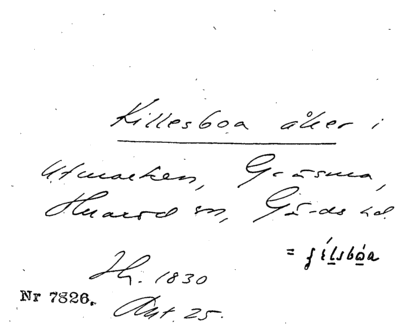 Killesboa åker i
Utmarken, Gråsma,
Huarod sn, Gärds hd.
= filsbåa
Jh. 1830
Nr 7826. Akt. 25.